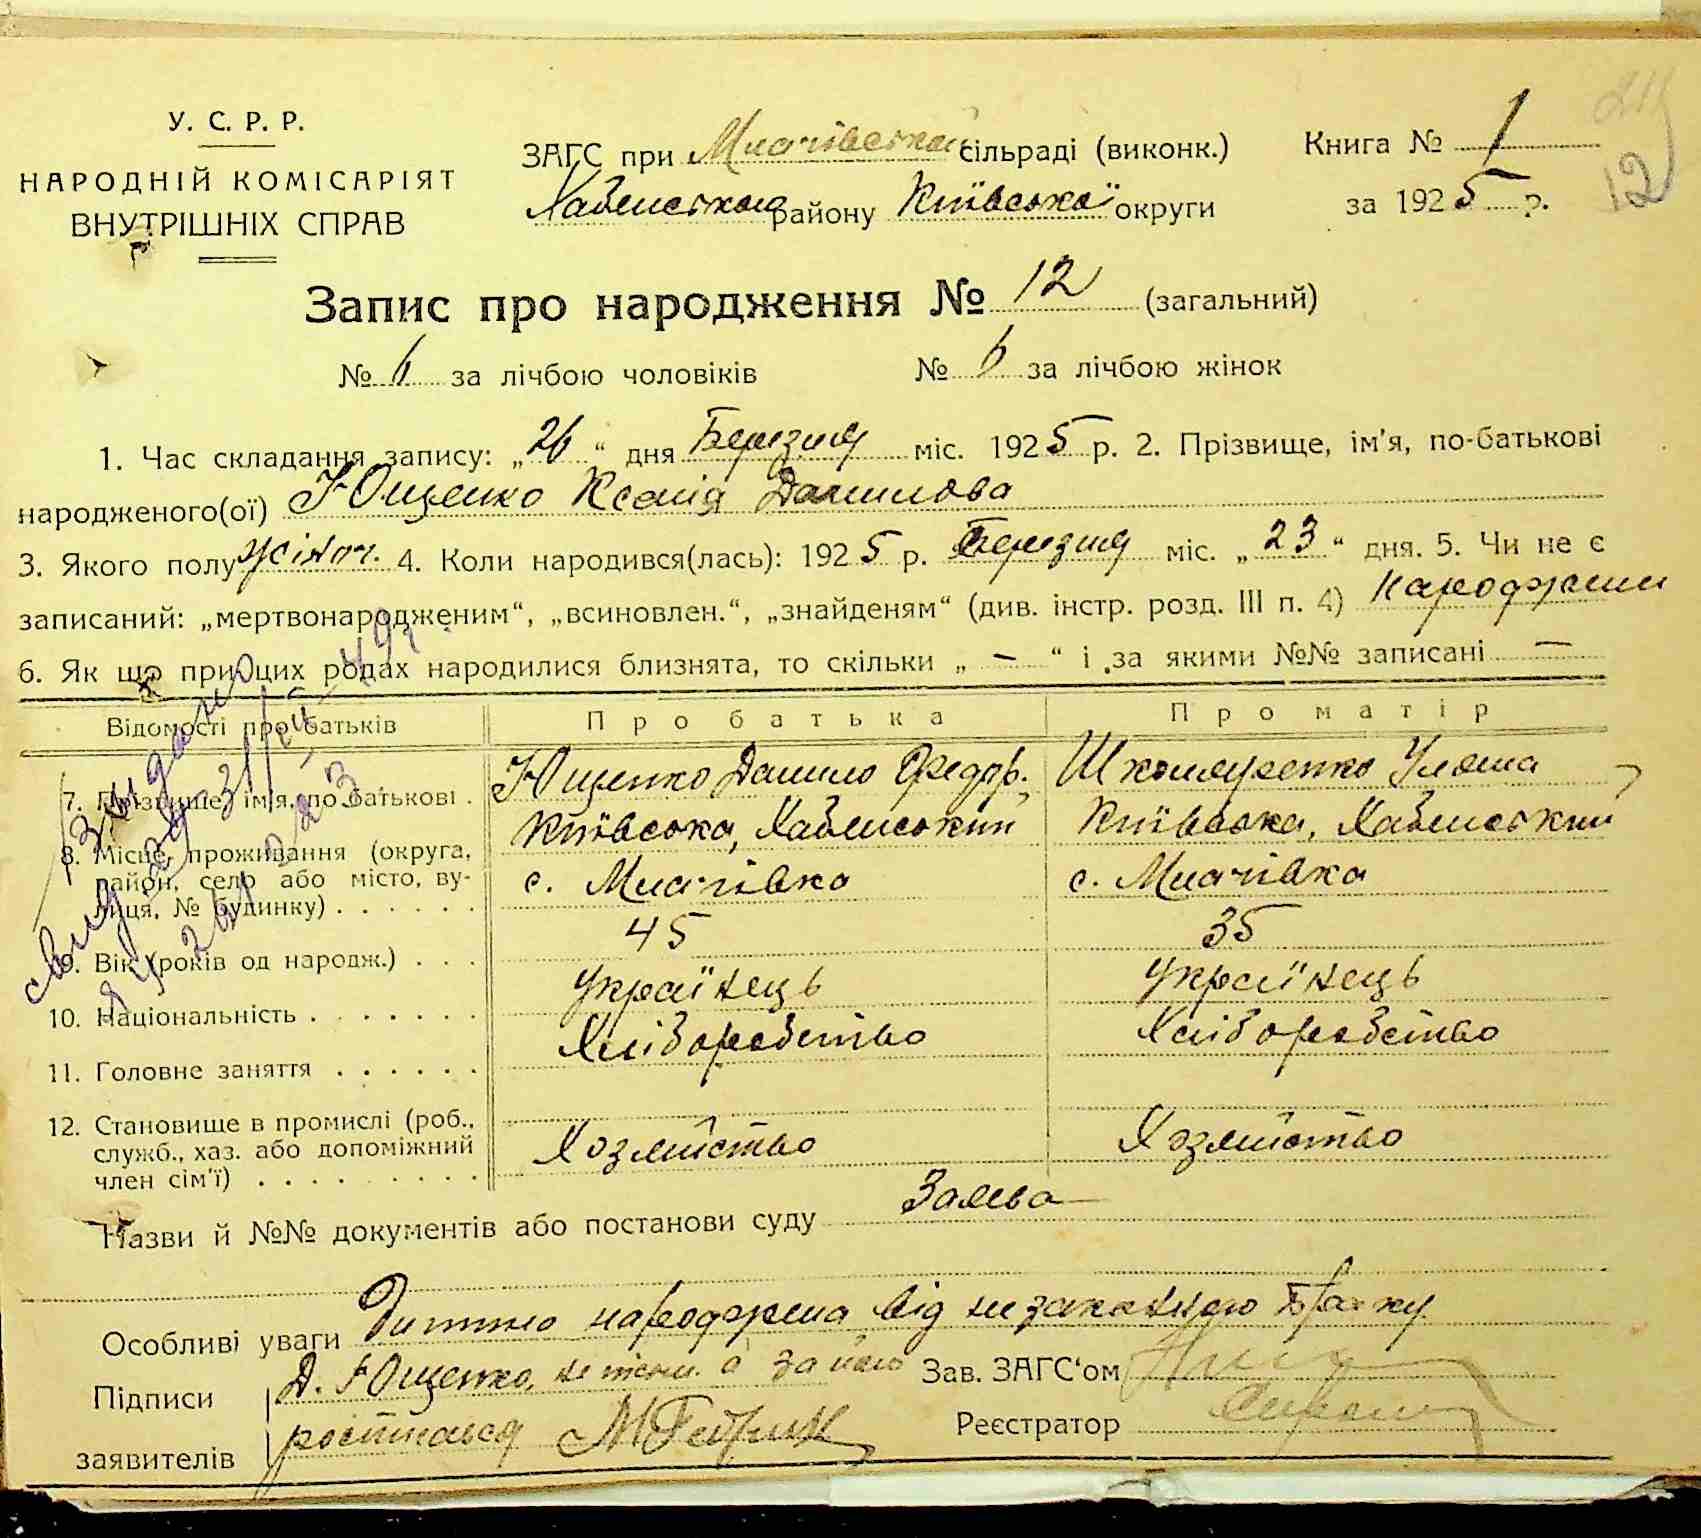 У. С. Р. Р.
НАРОДНІЙ КОМІСАРІЯТ
ВНУТРІШНІХ СПРАВ
ЗАГС при Млачівській сільраді (виконк.)
Хабенського району Київської округи
Книга № 1
за 1925 р.
12
Запис про народження № 12 (загальний)
№ 6 за лічбою чоловіків № 6 за лічбою жінок
1. Час складання запису: „26“ дня Березня міс. 1925 р. 2. Прізвище, ім'я, по-батькові
народженого(ої) Ющенко Ксенія Данилова
3. Якого полу жіноч. 4. Коли народився(лась): 1925 р. Березня міс. „23“ дня. 5. Чи не є
записаний: „мертвонародженим“, „всиновлен.“, „знайденям“ (див. інстр. розд. III п. 4) Народжений
6. Як що при цих родах народилися близнята, то скільки „ — “ і за якими №№ записані —
Відомості про батьків Про батька Про матір
7. Прізвище, ім'я, по батькові . Ющенко Данило Федор. Шкомяренко Уляна
8. Місце проживання (округа, район, село або місто, вулиця, № будинку) . . . . . . Київська, Хабенський Київська, Хабенський
с. Млачівка с. Млачівка
9. Вік (років од народж.) . . . 45 35
10. Національність . . . . . . . Українець Українець
11. Головне заняття . . . . . . Хліборобство Хліборобство
12. Становище в промислі (роб., служб., хаз. або допоміжний член сім'ї) . . . . . . . . . Хозяйство Хозяйство
Назви й №№ документів або постанови суду Заява
Особливі уваги Дитина народжена від незаконного браку
Підписи Д. Ющенко, за його Зав. ЗАГС'ом
заявителів Реєстратор